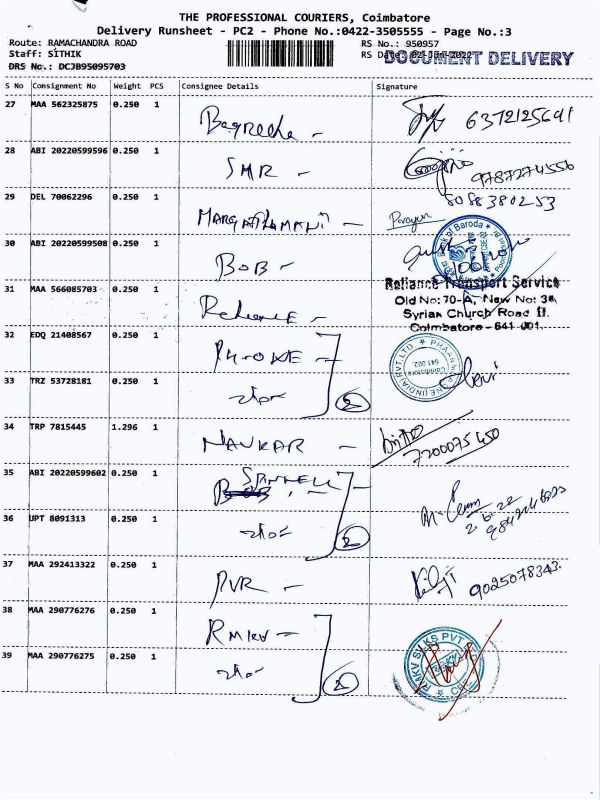 THE PROFESSIONAL COURIERS, Coimbatore
Delivery Runsheet - PC2 - Phone No.:0422-3505555 - Page No.:3
Route: RAMACHANDRA ROAD
Staff: SITHIK
DRS No.: DCJB95095703
RS No.: 950957
RS Date:
DOCUMENT DELIVERY
S No Consignment No Weight PCS Consignee Details Signature
27 MAA 562325875 0.250 1
6372125691
28 ABI 20220599596 0.250 1 SMR -
9787274556
29 DEL 70062296 0.250 1
8088380253
30 ABI 20220599508 0.250 1 BOB -
Bank of Baroda
31 MAA 566085703 0.250 1 Reliance -
Reliance Transport Service
Old No: 70-A, New No: 34
Syrian Church Road II.
Coimbatore - 641 001.
32 EDQ 21408567 0.250 1
33 TRZ 53728181 0.250 1
2
34 TRP 7815445 1.296 1 NAVKAR -
7200075450
35 ABI 20220599602 0.250 1
36 UPT 8091313 0.250 1
2
37 MAA 292413322 0.250 1 PVR -
9025078343.
38 MAA 290776276 0.250 1 RMKV -
39 MAA 290776275 0.250 1
2
RMKV SILKS PVT
CBE